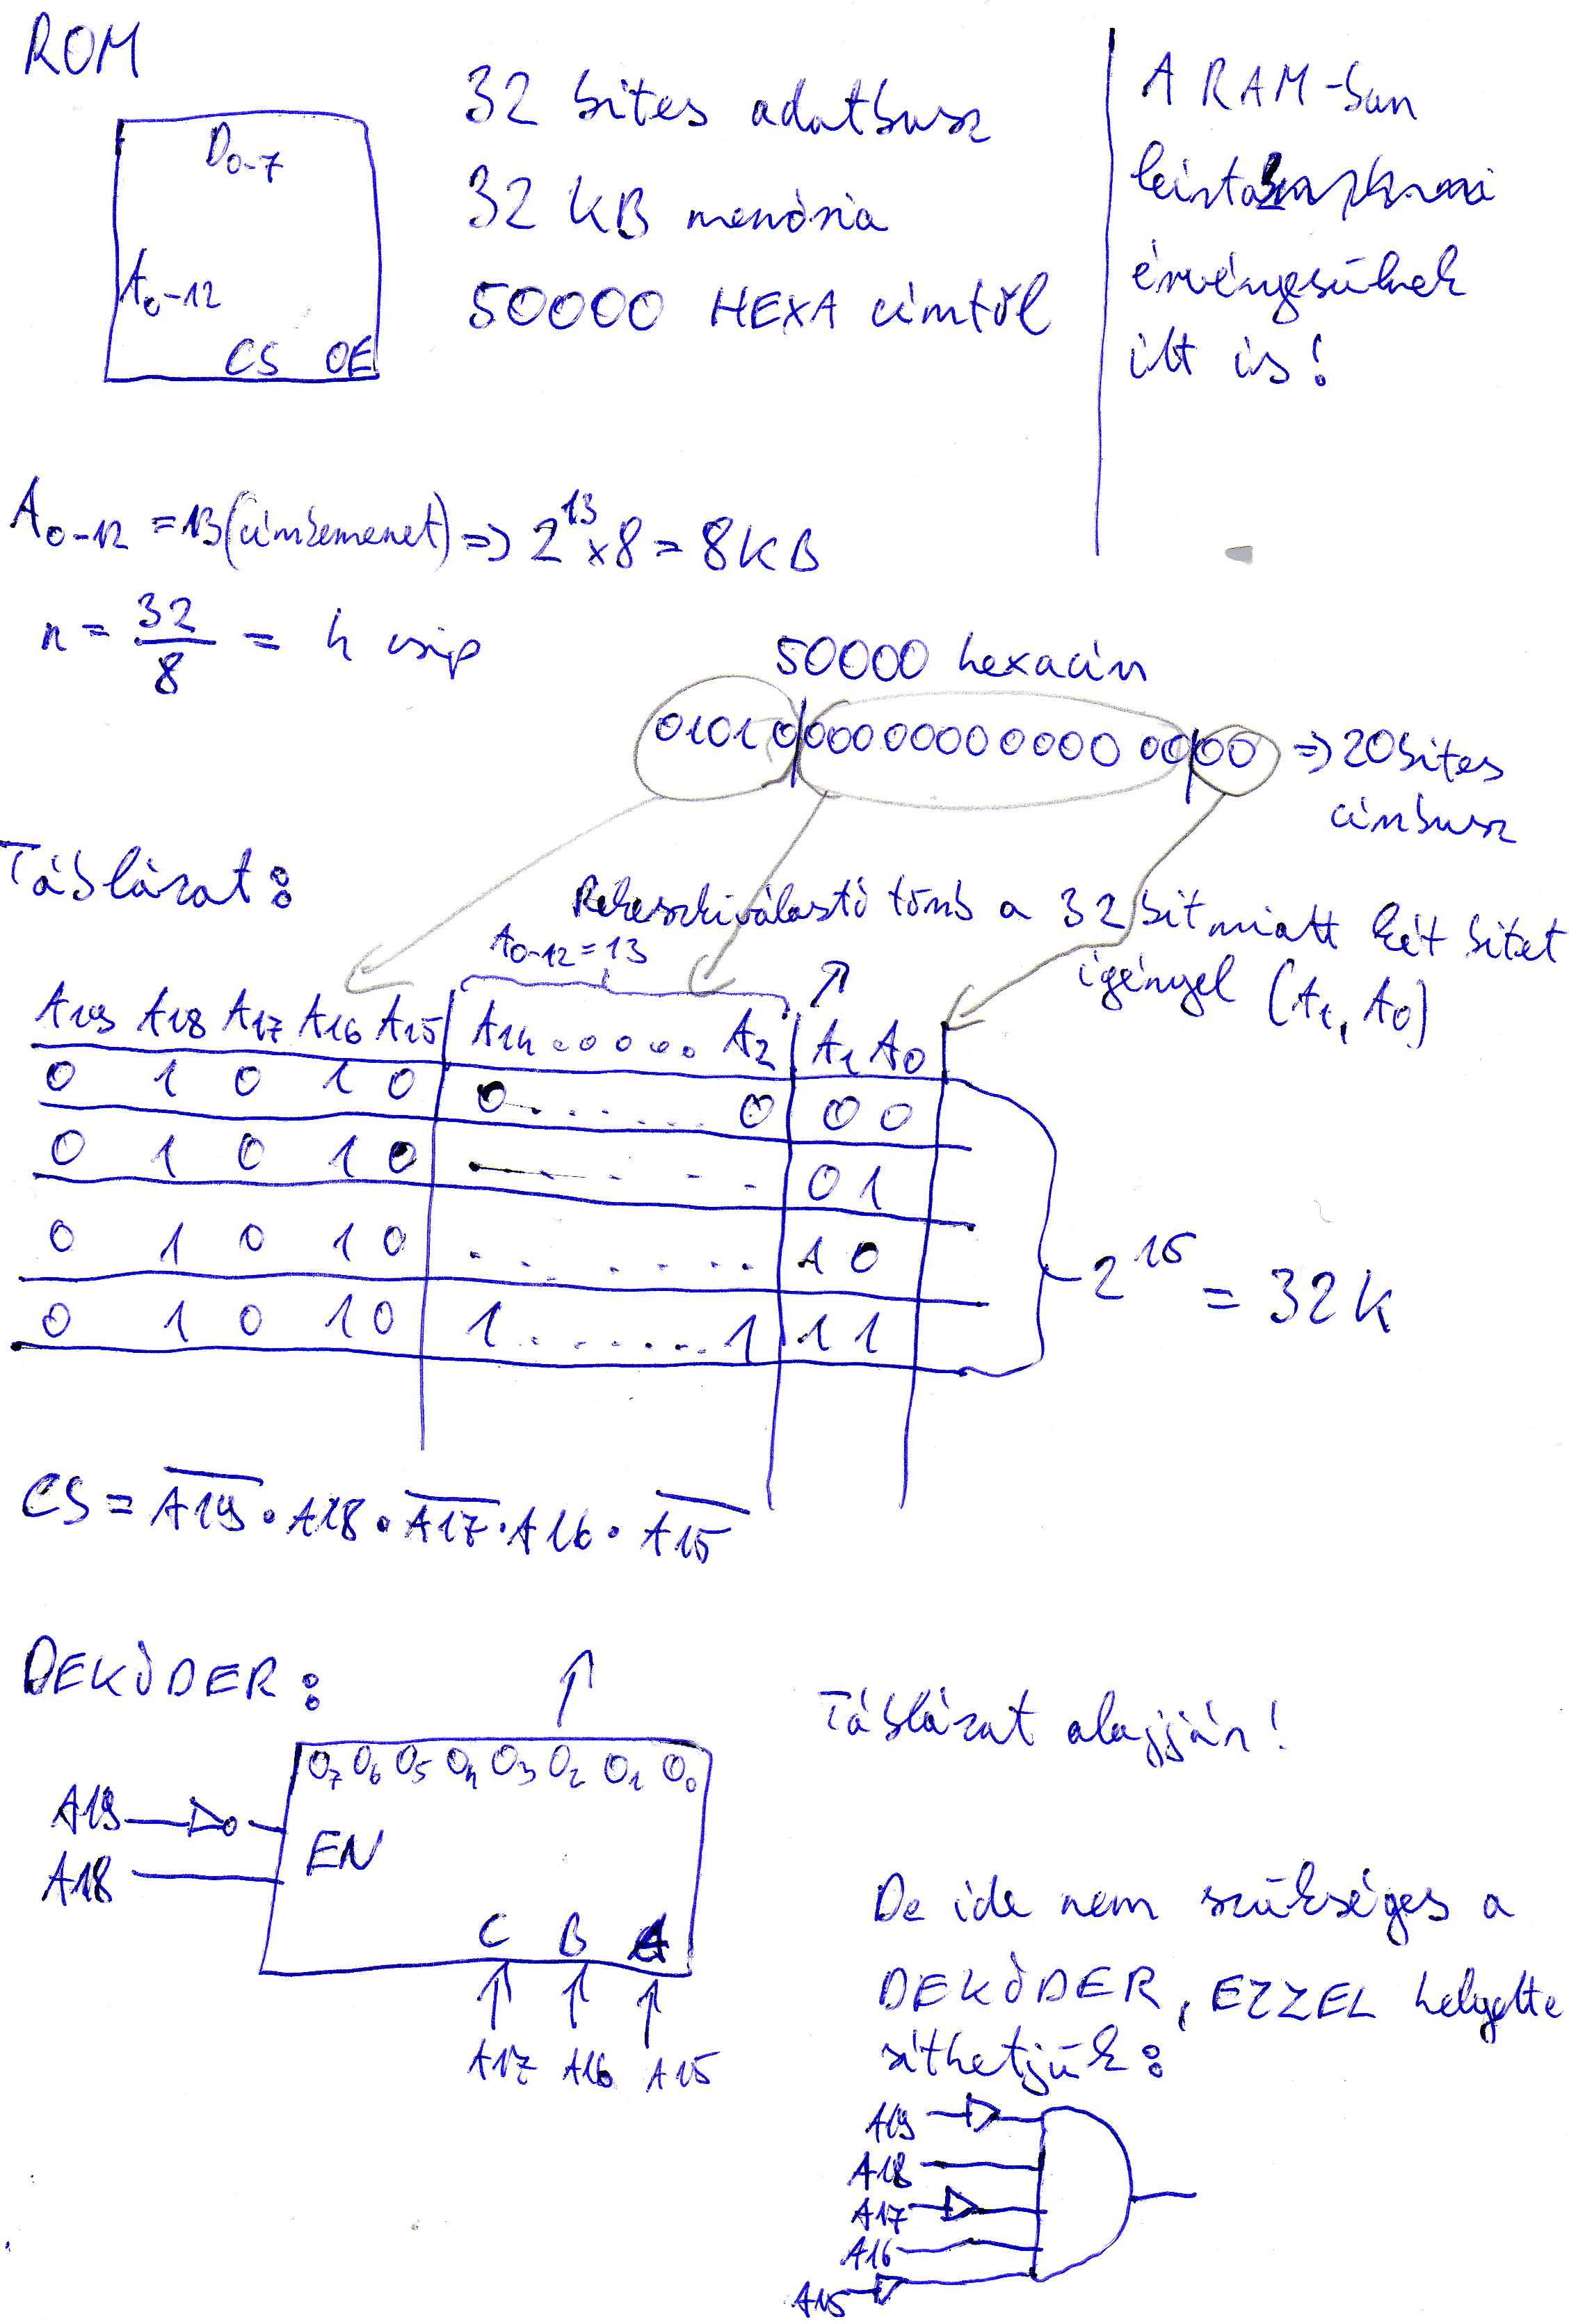 ROM
D0-7
A0-12
CS OE
32 bites adatbusz
32 KB memória
50000 HEXA címtől
A RAM-ban
leírtak
érvényesülnek
itt is!
A0-12 = 13 (címbemenet) => 2^13 x 8 = 8KB
n = 32/8 = 4 csip
50000 hexacím
01010|0000000000000|00 => 20 bites
címbusz
Táblázat:
Rekeszkiválasztó tömb a 32 bit miatt két bitet
igényel (A1, A0)
A0-12 = 13
A19 A18 A17 A16 A15 A14....... A2 A1 A0
0 1 0 1 0 0........0 0 0
0 1 0 1 0 ........ 0 1
0 1 0 1 0 ........ 1 0
0 1 0 1 0 1........1 1 1
2^15 = 32k
CS = A̅1̅9̅ · A18 · A̅1̅7̅ · A16 · A̅1̅5̅
DEKÓDER:
O7 O6 O5 O4 O3 O2 O1 O0
A19
A18
EN
C B A
A17 A16 A15
Táblázat alapján!
De ide nem szükséges a
DEKÓDER, EZZEL helyette
síthetjük:
A19
A18
A17
A16
A15